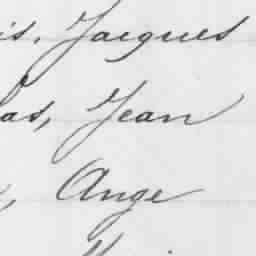 is. Jacques
as, Jean
, Ange